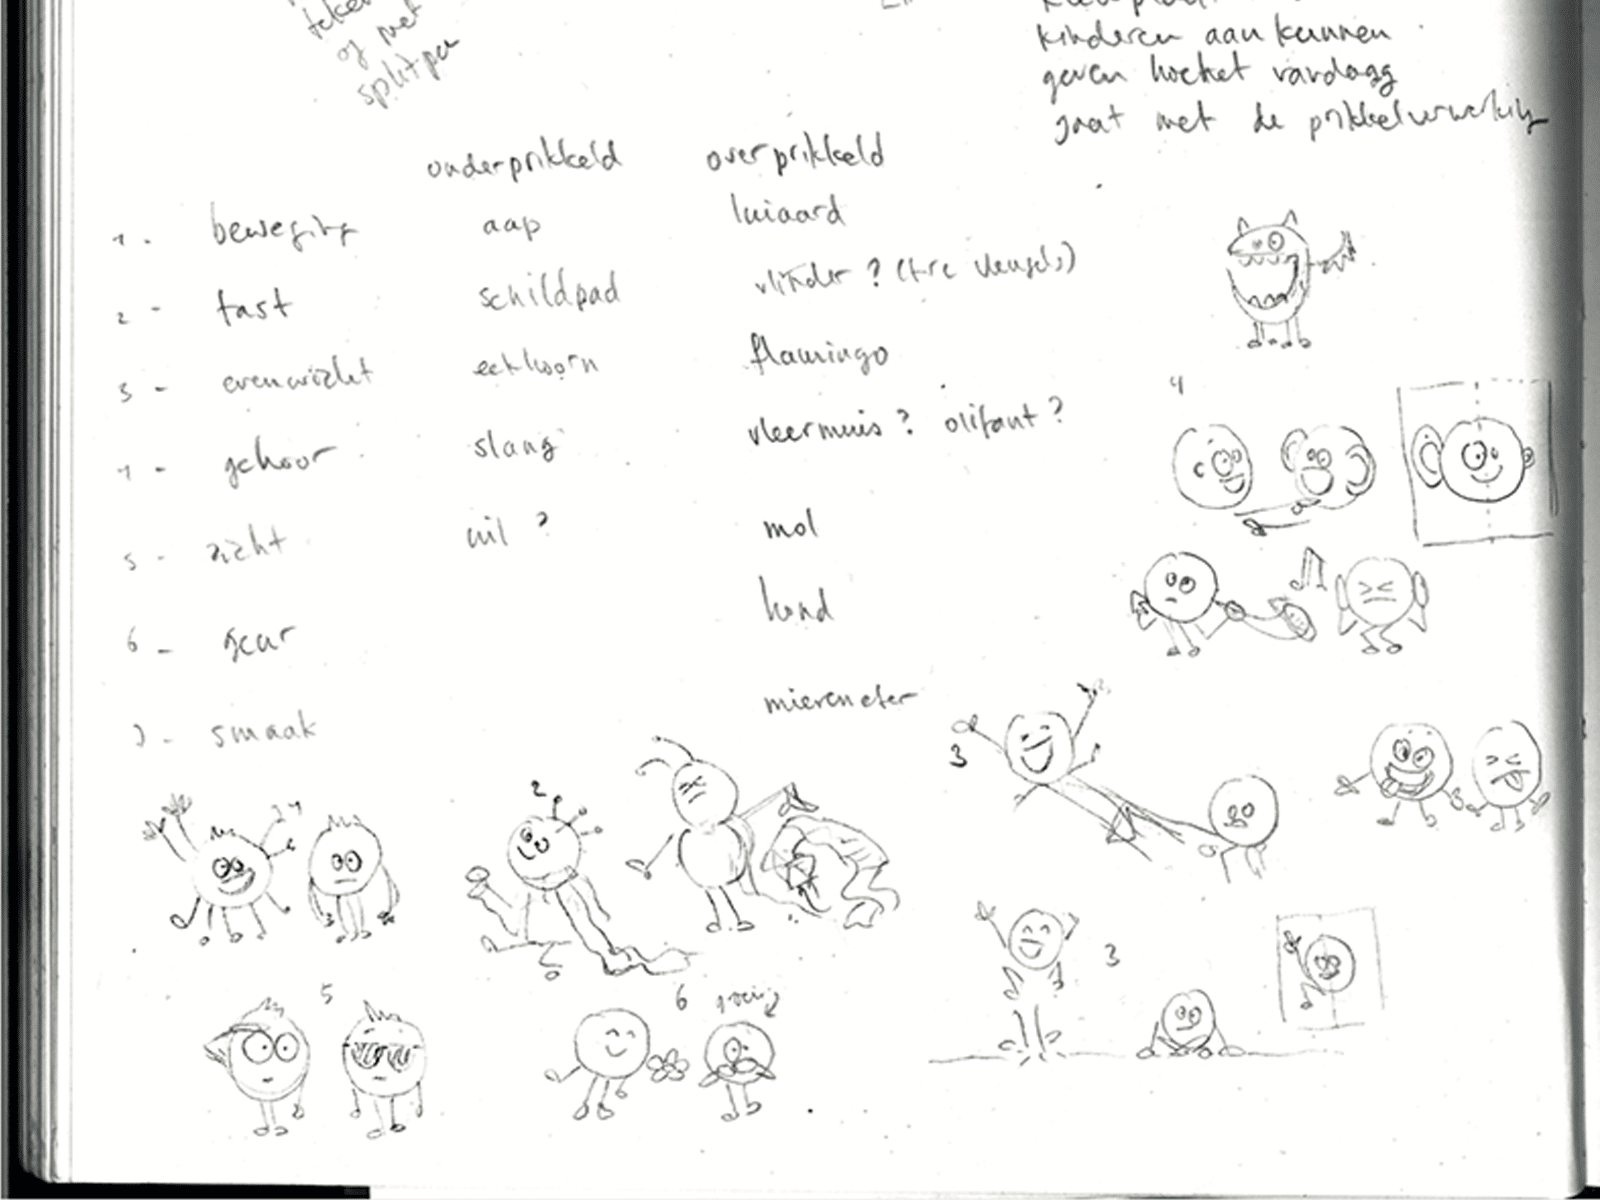 teken
of met
splitpen
kinderen aan kunnen
geven hoe het vandaag
gaat met de prikkelverwerking
onderprikkeld overprikkeld
1. beweging aap luiaard
2 - tast schildpad vlinder? (+re vleugels)
3 - evenwicht eekhoorn flamingo
4 - gehoor slang vleermuis? olifant?
5 - zicht uil? mol
6 - geur hond
7 - smaak miereneter
4
3
2
3
5
6